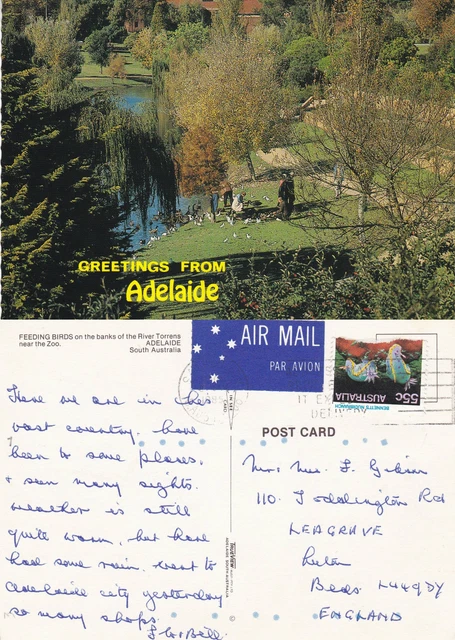 GREETINGS FROM
Adelaide
FEEDING BIRDS on the banks of the River Torrens
near the Zoo.
ADELAIDE
South Australia
AIR MAIL
PAR AVION
55c
AUSTRALIA
BENNETT'S NUDIBRANCH
POST CARD
Here we are in this
vast country. have
been to some places,
& seen many sights.
weather is still
quite warm, but have
had some rain. went to
Adelaide city yesterday
so many shops.
& Bill.
Mr & Mrs. F. Gibson
110. Toddington Rd
LEAGRAVE
Luton
Beds. LU4 9DY
ENGLAND